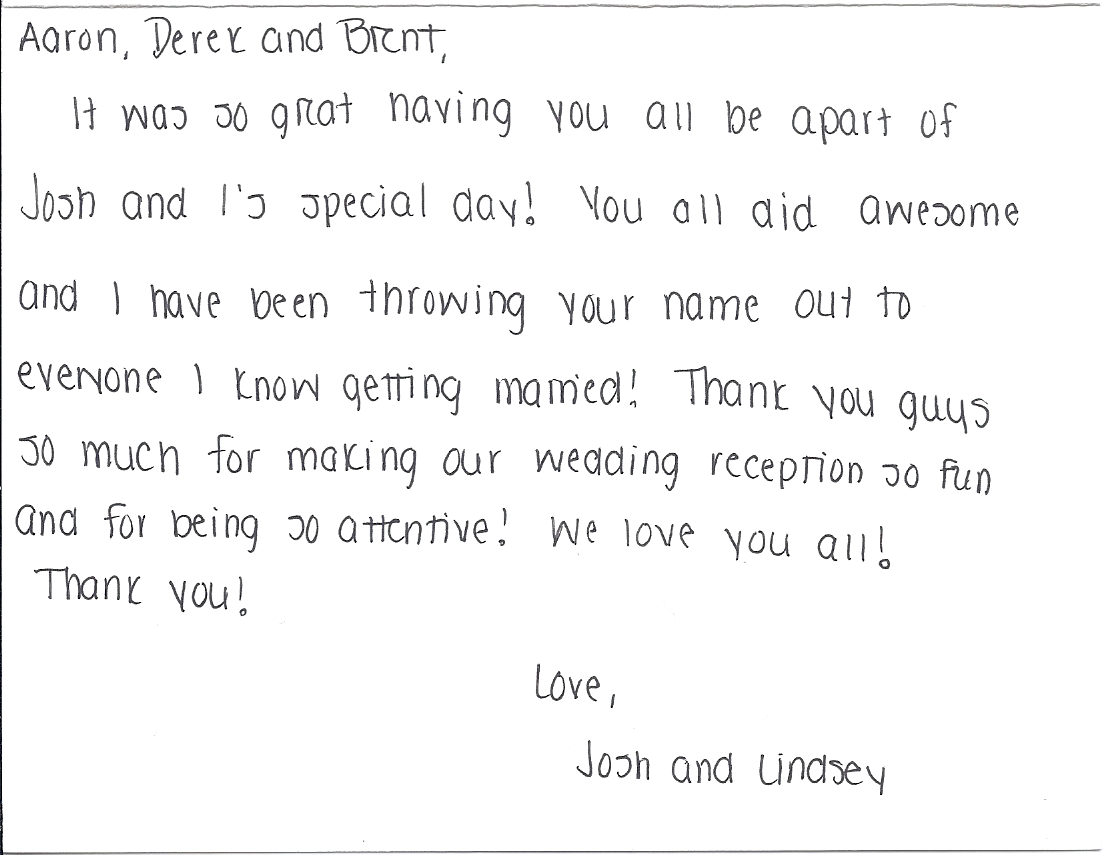 Aaron, Derek and Brent,
It was so great having you all be apart of
Josh and I's special day! You all did awesome
and I have been throwing your name out to
everyone I know getting married! Thank you guys
so much for making our wedding reception so fun
and for being so attentive! We love you all!
Thank you!
Love,
Josh and Lindsey